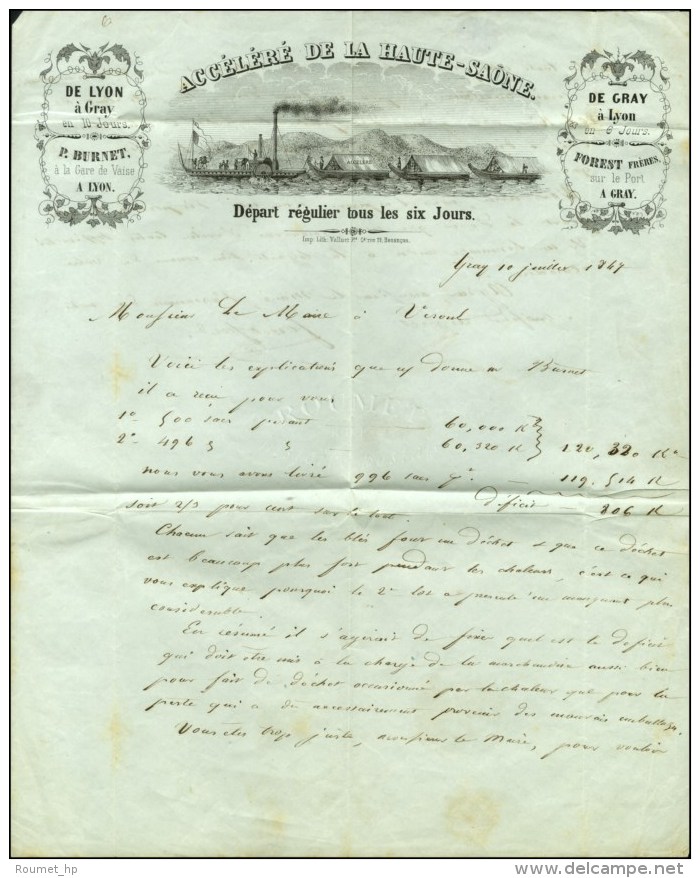 ACCÉLÉRÉ DE LA HAUTE-SAÔNE.
DE LYON
à Gray
en 10 Jours.
P. BURNET,
à la Gare de Vaise
A LYON.
ACCÉLÉRÉ
DE GRAY
à Lyon
en 6 Jours.
FOREST FRÈRES,
sur le Port
A GRAY.
Départ régulier tous les six Jours.
Imp. Lith. Besançon.
Gray 10 juillet 1847
Monsieur Le Maire à Vesoul
Voici les explications que donne M Burnet
il a reçu pour vous
1° 500 sacs pesant — 60,000 K
2° 496 — 60,320 K 120,320 K
nous vous avons livré 996 sacs — 119.514 K
soit 2/3 pour cent sur le tout. déficit — 806 K
Chacun sait que les blés font un déchet & que ce déchet
est beaucoup plus fort pendant les chaleurs, c'est ce qui
vous explique pourquoi le 2e lot a présenté un manquant plus
considérable.
En résumé il s'agirait de fixer quel est le déficit
qui doit être mis à la charge de la marchandise aussi bien
pour fait de déchet occasionné par la chaleur que pour la
perte qui a dû nécessairement provenir des mauvais emballages.
Vous êtes trop juste, monsieur le Maire, pour vouloir
Roumet_hp
www.delcampe.net